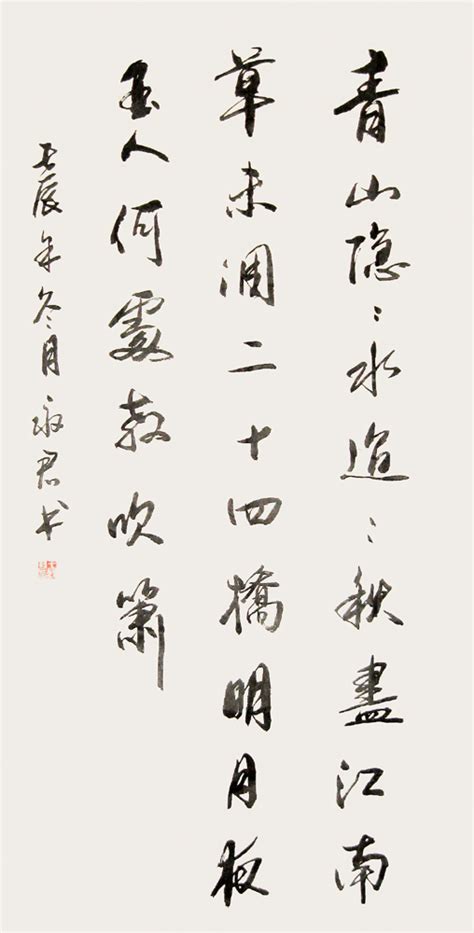 青山隐:水迢:秋盡江南
草未凋二十四橋明月夜
玉人何處教吹簫
壬辰年冬月永君书